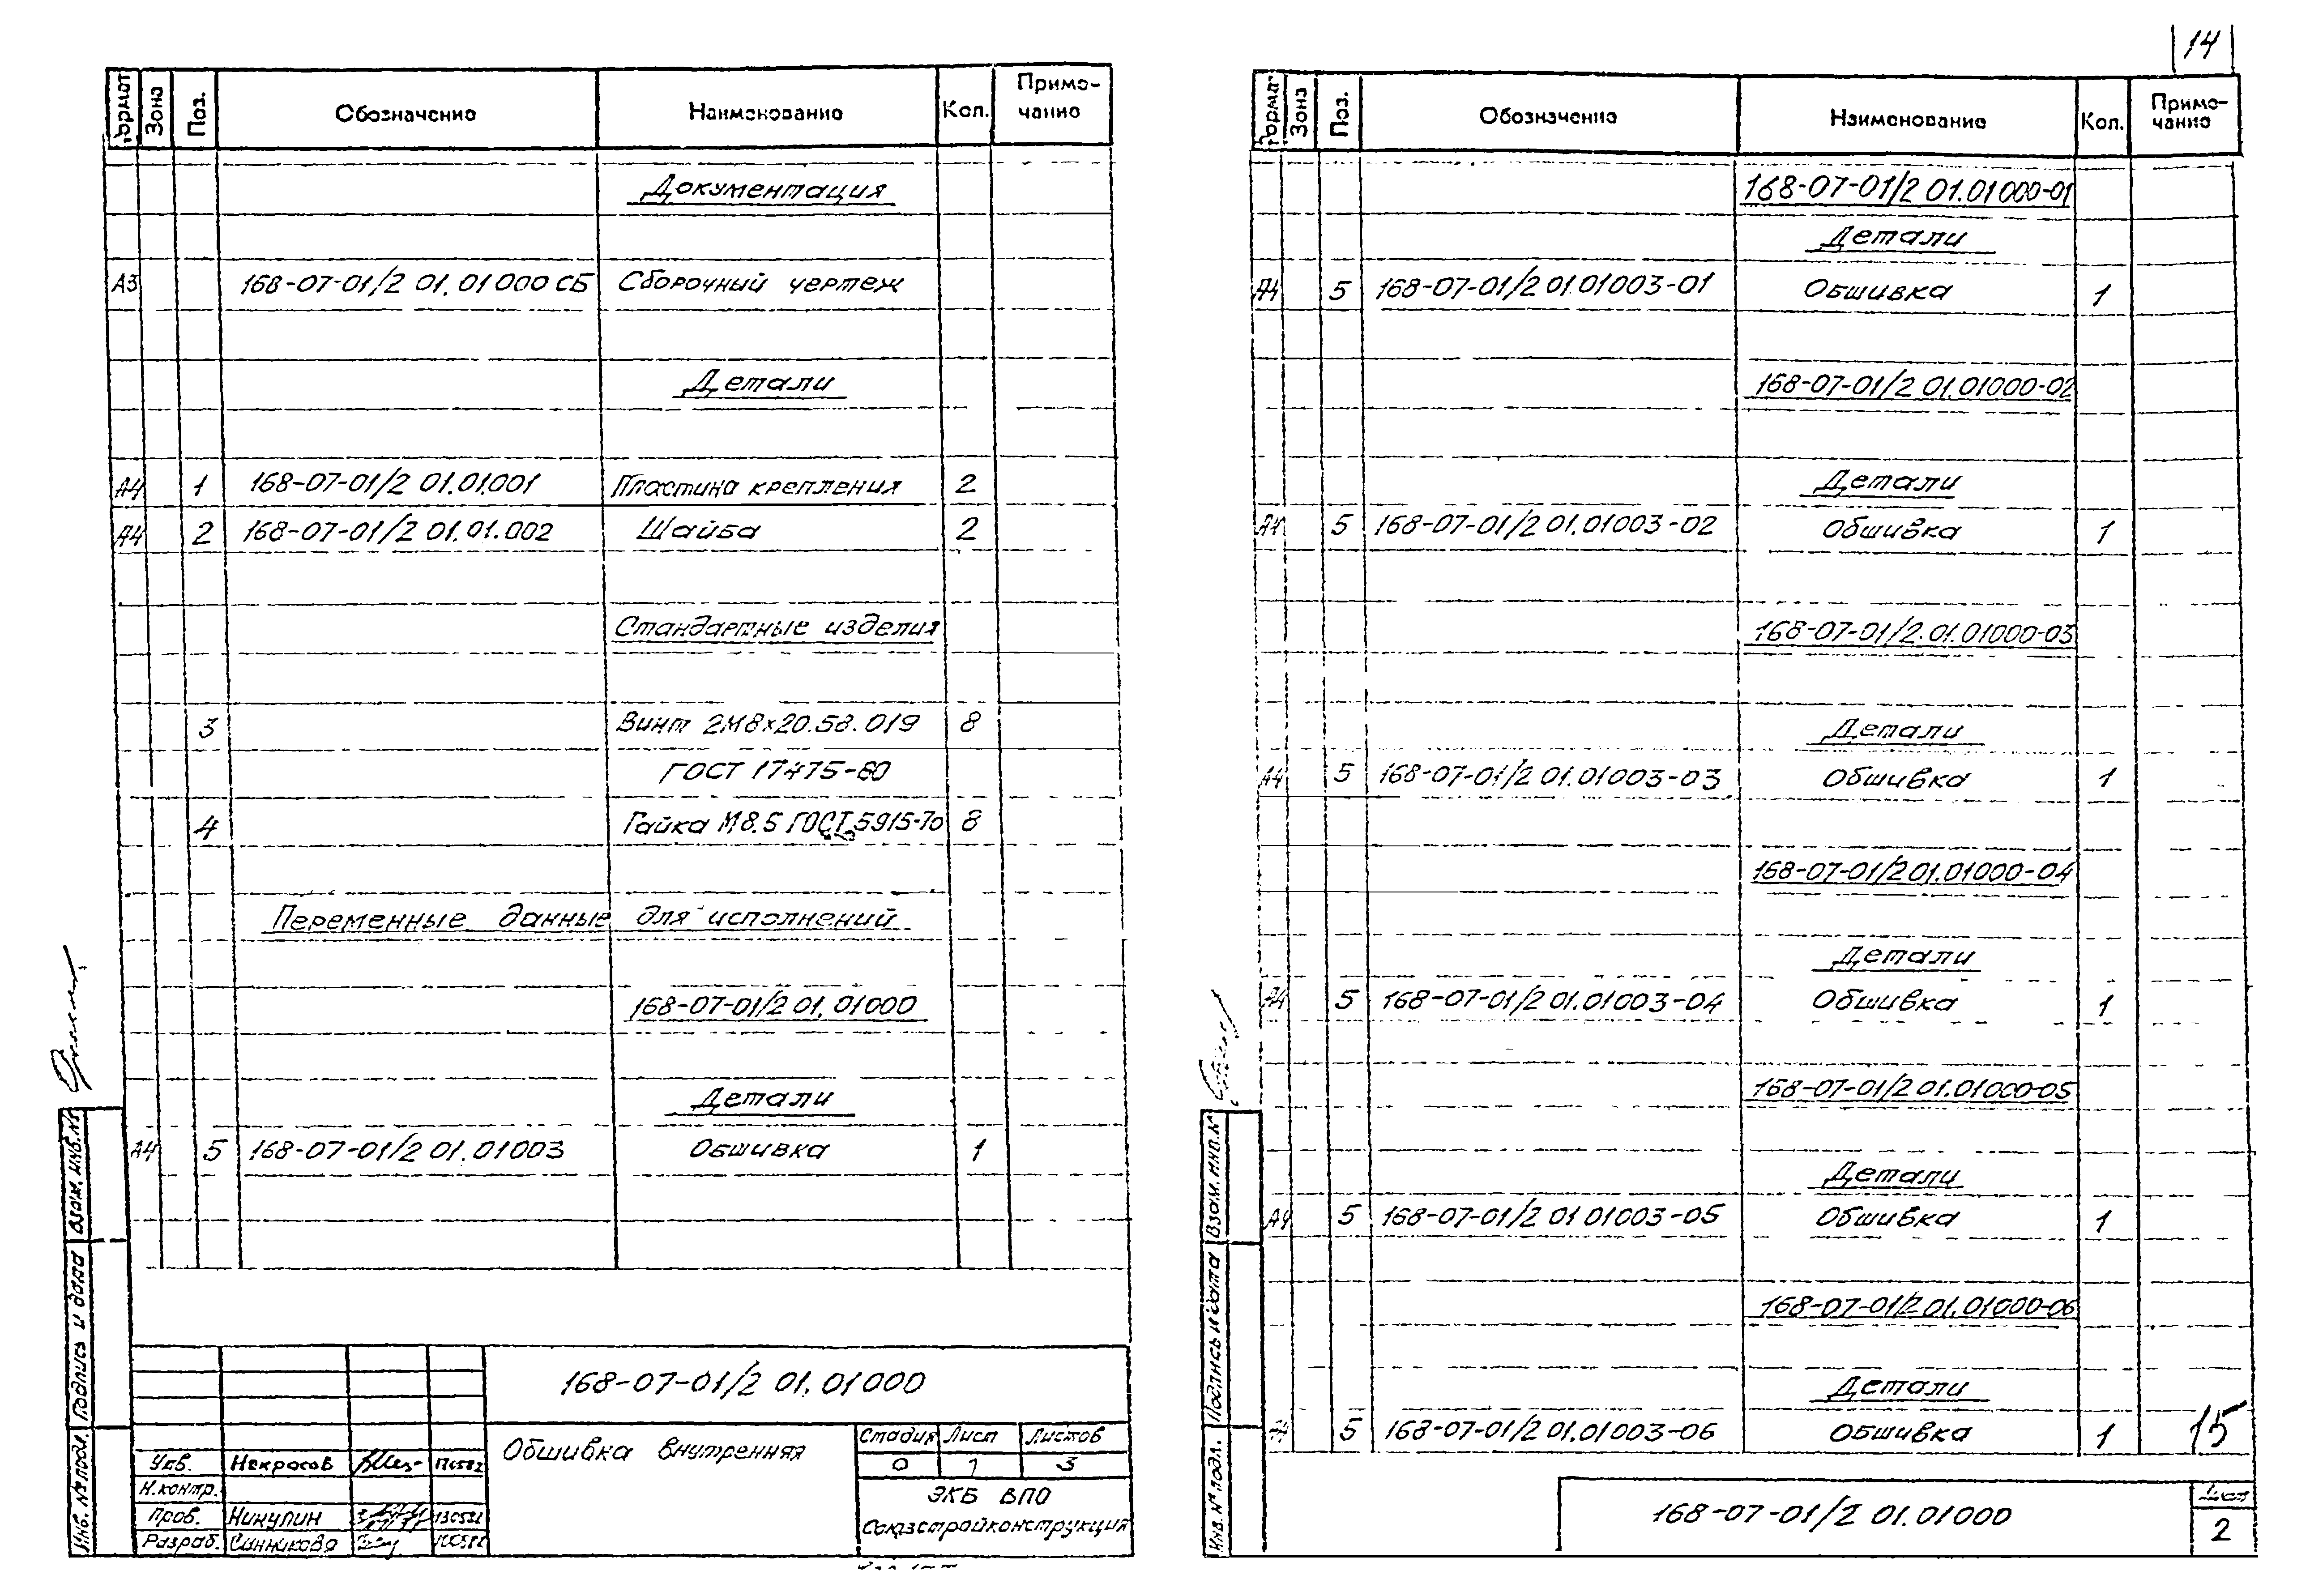 14
Формат Зона Поз. Обозначение Наименование Кол. Примечание
Документация
А3 168-07-01/2 01.01000 СБ Сборочный чертеж
Детали
А4 1 168-07-01/2 01.01.001 Пластина крепления 2
А4 2 168-07-01/2 01.01.002 Шайба 2
Стандартные изделия
3 Винт 2М8×20.58.019 8
ГОСТ 17475-80
4 Гайка М8.5 ГОСТ 5915-70 8
Переменные данные для исполнений
168-07-01/2 01.01000
Детали
А4 5 168-07-01/2 01.01003 Обшивка 1
Взам. инв. №
Подпись и дата
Инв. № подл.
168-07-01/2 01.01000
Обшивка внутренняя
Стадия Лист Листов
О 1 3
ЭКБ ВПО
Союзстройконструкция
Утв. Некрасов
Н.контр.
Пров. Никулин
Разраб. Синникова
Формат Зона Поз. Обозначение Наименование Кол. Примечание
168-07-01/2 01.01000-01
Детали
А4 5 168-07-01/2 01.01003-01 Обшивка 1
168-07-01/2 01.01000-02
Детали
А4 5 168-07-01/2 01.01003-02 Обшивка 1
168-07-01/2.01.01000-03
Детали
А4 5 168-07-01/2 01.01003-03 Обшивка 1
168-07-01/2 01.01000-04
Детали
А4 5 168-07-01/2 01.01003-04 Обшивка 1
168-07-01/2 01.01000-05
Детали
А4 5 168-07-01/2 01 01003-05 Обшивка 1
168-07-01/2 01.01000-06
Детали
А4 5 168-07-01/2 01.01003-06 Обшивка 1
15
Взам. инв. №
Подпись и дата
Инв. № подл.
168-07-01/2 01.01000
Лист
2